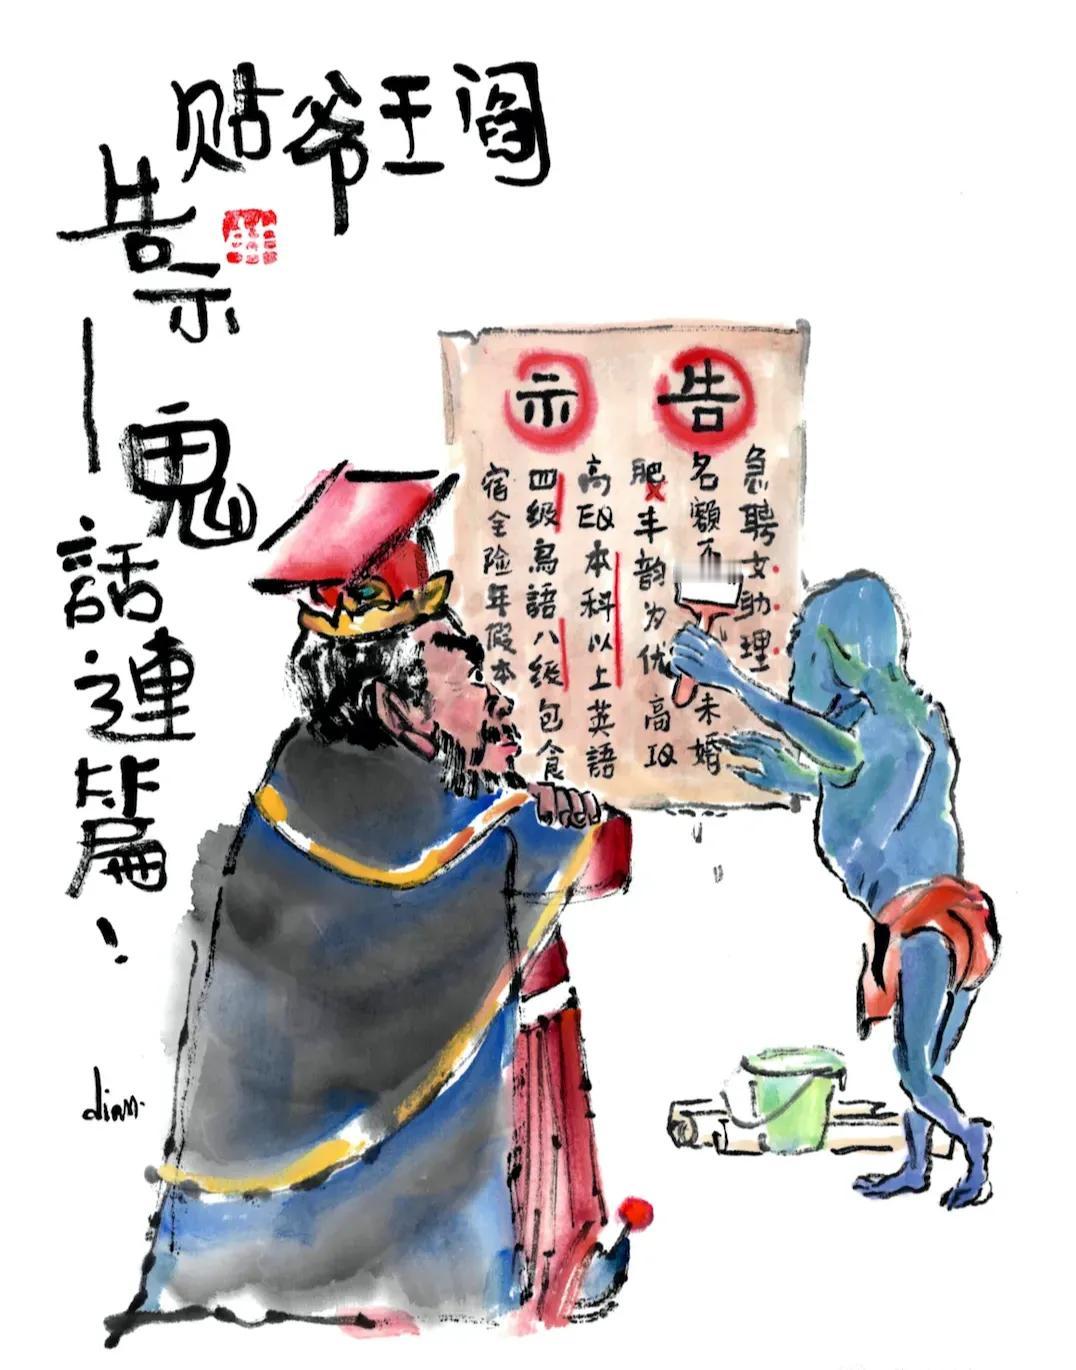 阎王爷贴
告示—鬼話連篇！
告示
急聘女助理
名額不 未婚
肥丰韵为优 高IQ
高EQ本科以上英語
四级鳥語八级包食
宿全险年假本
dian.